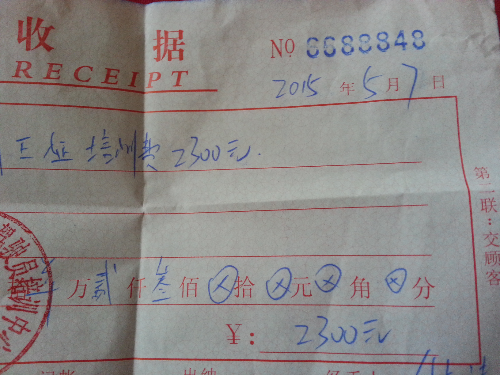 收 据 No 6688848
RECEIPT
2015 年 5 月 7 日
培训费 2300元
第二联：交顾客
万 贰 仟 叁 佰 ⊗ 拾 ⊗ 元 ⊗ 角 ⊗ 分
¥： 2300元
驶员培训中心